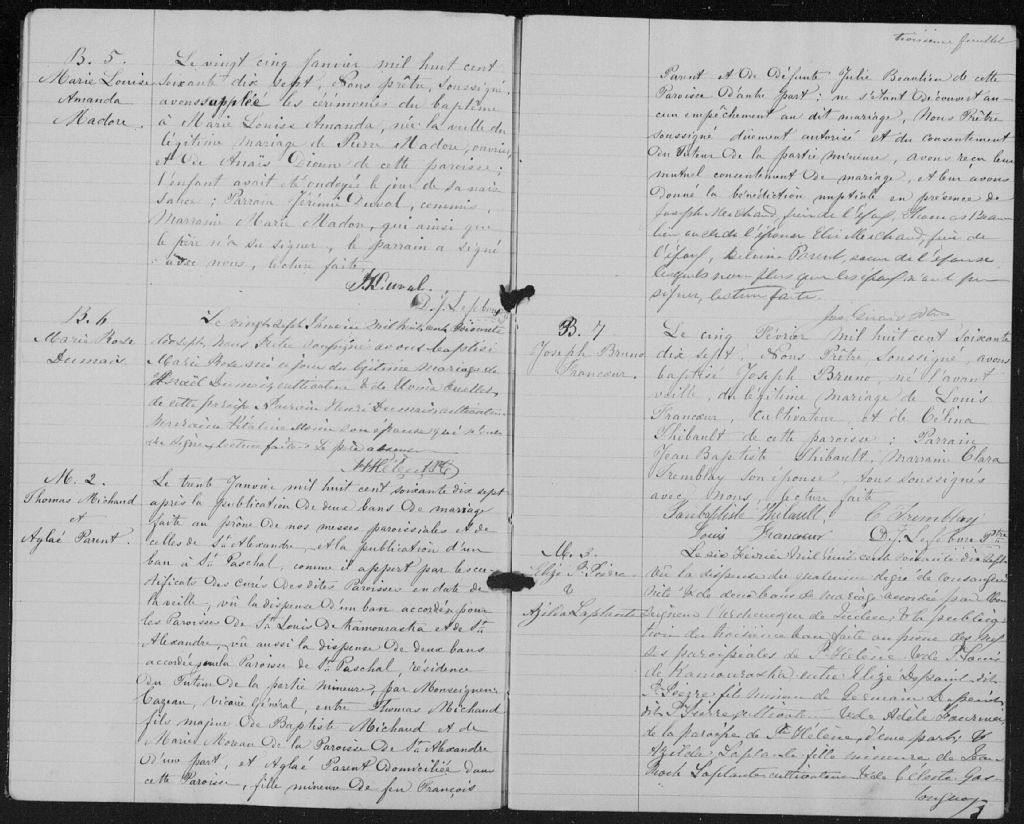 B. 5.
Marie Louise
Amanda
Madore.
Le vingt cinq Janvier mil huit cent
soixante dix sept, Nous prêtre, soussigné,
avons suppléé les cérémonies du baptême
à Marie Louise Amanda, née la veille du
légitime mariage de Pierre Madore, ouvrier,
et de Anaïs Dionne de cette paroisse;
l'enfant avait été ondoyée le jour de sa nais
sance; Parrain Jérémie Duval, commis,
Marraine Marie Madore, qui ainsi que
le père n'a su signer, le parrain a signé
avec nous, lecture faite,
J. Duval.
D. J. Lefebvre
B. 6
Marie Rose
Dumais
Le vingt sept Janvier mil huit cent soixante
dix sept, Nous Prêtre soussigné avons baptisé
Marie Rose née ce jour du légitime mariage de
Israël Dumais cultivateur & de Ouellet
de cette paroisse Parrain Henri Dumais, cultivateur
Marraine son épouse qui n'ont
su signer, lecture faite. Le père absent
M. 2.
Thomas Michaud
et
Aglaé Parent.
Le trente Janvier mil huit cent soixante dix sept
après la publication de deux bans de mariage
faite au prône de nos messes paroissiales et de
celles de St. Alexandre, et la publication d'un
ban à St. Paschal, comme il appert par les cer-
tificats des Curés des dites Paroisses en date de
la veille, vû la dispense d'un ban accordée pour
les Paroisses de St. Louis de Kamouraska et de St.
Alexandre, vû aussi la dispense de deux bans
accordée pour la Paroisse de St. Paschal, résidence
du Tuteur de la partie mineure, par Monseigneur
Cazeau, Vicaire Général, entre Thomas Michaud
fils majeur de Baptiste Michaud et de
Marie Moreau de la Paroisse de St. Alexandre
d'une part, et Aglaé Parent domiciliée dans
cette Paroisse, fille mineure de feu François
troisième feuillet
Parent et de Défunte Julie Beaulieu de cette
Paroisse d'autre part; ne s'étant découvert au-
cun empêchement au dit mariage, Nous Prêtre
soussigné dûment autorisé et du consentement
du Tuteur de la partie mineure, avons reçu leur
mutuel consentement de mariage, et leur avons
donné la bénédiction nuptiale en présence de
Joseph Michaud, frère de l'époux, Thomas Beau-
lieu oncle de l'épouse Elie Michaud, frère de
l'époux, Parent, sœur de l'épouse
lesquels non plus que les époux n'ont pu
signer, lecture faite.
B. 7
Joseph Bruno
Francœur.
Le cinq Février mil huit cent soixante
dix sept, Nous Prêtre soussigné, avons
baptisé Joseph Bruno, né l'avant
veille, du légitime mariage de Louis
Francœur, cultivateur, et de Célina
Thibault de cette paroisse; Parrain
Jean Baptiste Thibault, Marraine Clara
Tremblay son épouse, tous soussignés
avec nous, lecture faite
Jean baptiste Thibault, C. Tremblay
Louis Francœur D. J. Lefebvre Ptre
M. 3.
Elize St. Pierre
&
Azilda Laplante
Le six Février mil huit cent soixante dix sept
Vû la dispense du quatrième degré de consangui
nité & de deux bans de mariage accordée par Mon
seigneur l'archevêque de Québec & la publica-
tion du troisième ban faite au prône des mes
ses paroissiales de Ste Hélène & de St. Louis
de Kamouraska entre Elize Dupéré dit
St. Pierre fils mineur de Germain Dupéré
dit St. Pierre cultivateur & de Adèle Fournier
de la paroisse de Ste Hélène, d'une part; &
Azilda Laplante fille mineure de Jean
Roch Laplante cultivateur & de Céleste Gas-